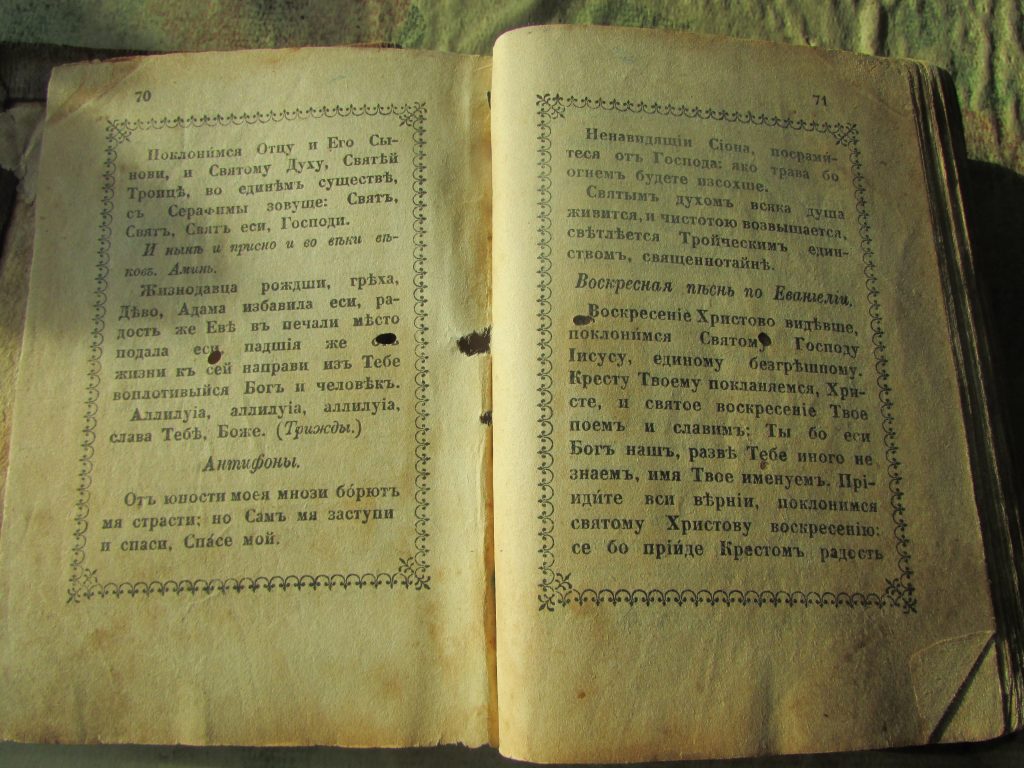 70
Поклони́мся Отцу и Его Сы-
нови, и Святому Духу, Святѣй
Троицѣ, во единѣмъ существѣ,
съ Серафимы зовуще: Святъ,
Святъ, Святъ еси, Господи.
И нынѣ и присно и во вѣки вѣ-
ковъ. Аминь.
Жизнодавца рождши, грѣха,
Дѣво, Адама избавила еси, ра-
дость же Евѣ въ печали мѣсто
подала еси падшія же
жизни къ сей направи изъ Тебе
воплотивыйся Богъ и человѣкъ.
Аллилуіа, аллилуіа, аллилуіа,
слава Тебѣ, Боже. (Трижды.)
Антифоны.
Отъ юности моея мнози бо́рютъ
мя страсти; но Самъ мя заступи
и спаси, Спа́се мой.
71
Ненавидящіи Сіона, посрами́-
теся отъ Господа: яко трава бо
огнемъ будете изсохше.
Святымъ духомъ всяка душа
живится, и чистотою возвышается,
свѣтлѣется Тройческимъ един-
ствомъ, священнотайнѣ.
Воскресная пѣснь по Евангеліи.
Воскресеніе Христово видѣвше,
поклони́мся Святому Господу
Іисусу, единому безгрѣшному.
Кресту Твоему покланяемся, Хри-
сте, и святое воскресеніе Твое
поемъ и славимъ: Ты бо еси
Богъ нашъ, развѣ Тебе иного не
знаемъ, имя Твое именуемъ. Прі-
иди́те вси вѣрніи, поклонимся
святому Христову воскресенію:
се бо прі́иде Крестомъ радость